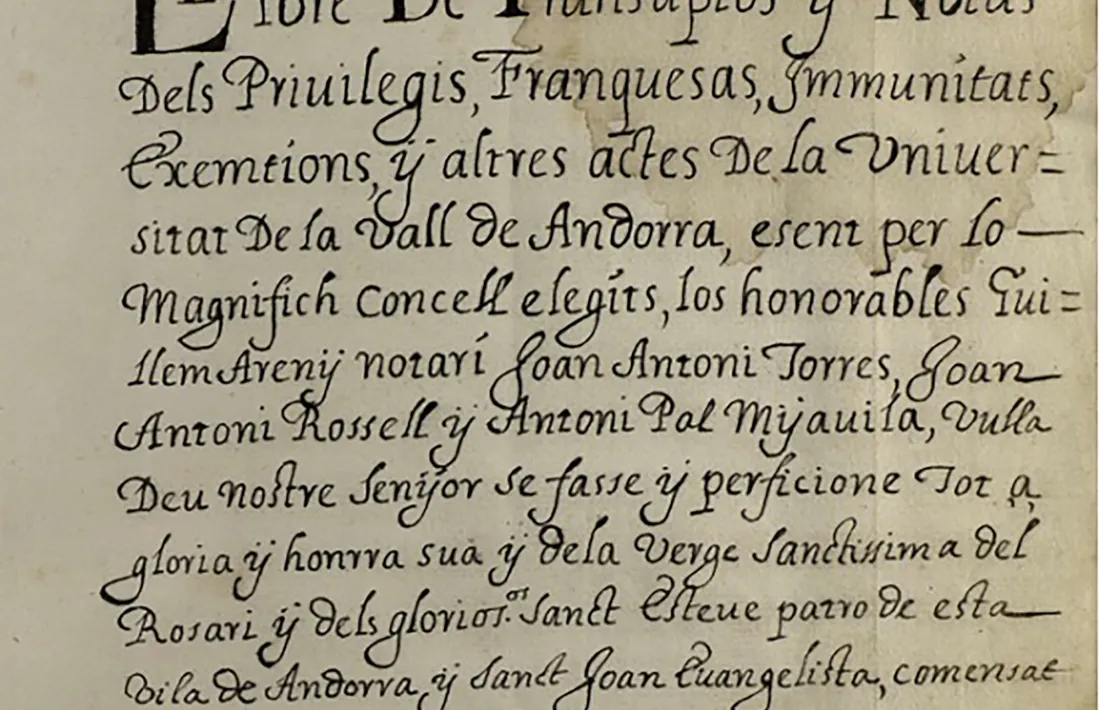 Llibre De Transumptos y Notas
Dels Priuilegis, Franquesas, Jmmunitats,
Exemtions, ÿ altres actes De la Vniuer=
sitat De la Vall de Andorra, esent per lo
Magnifich Concell elegits, los honorables Gui=
llem Areny notari Joan Antoni Torres, Joan
Antoni Rossell ÿ Antoni Pal Mÿauila, Vulla
Deu nostre Senÿor se fasse ÿ perficione Tot a
gloria ÿ honrra sua ÿ dela Verge Sanctissima del
Rosari ÿ dels glorios.os Sanct Esteue patro de esta
Vila de Andorra, ÿ Sanct Joan Euangelista, comensat